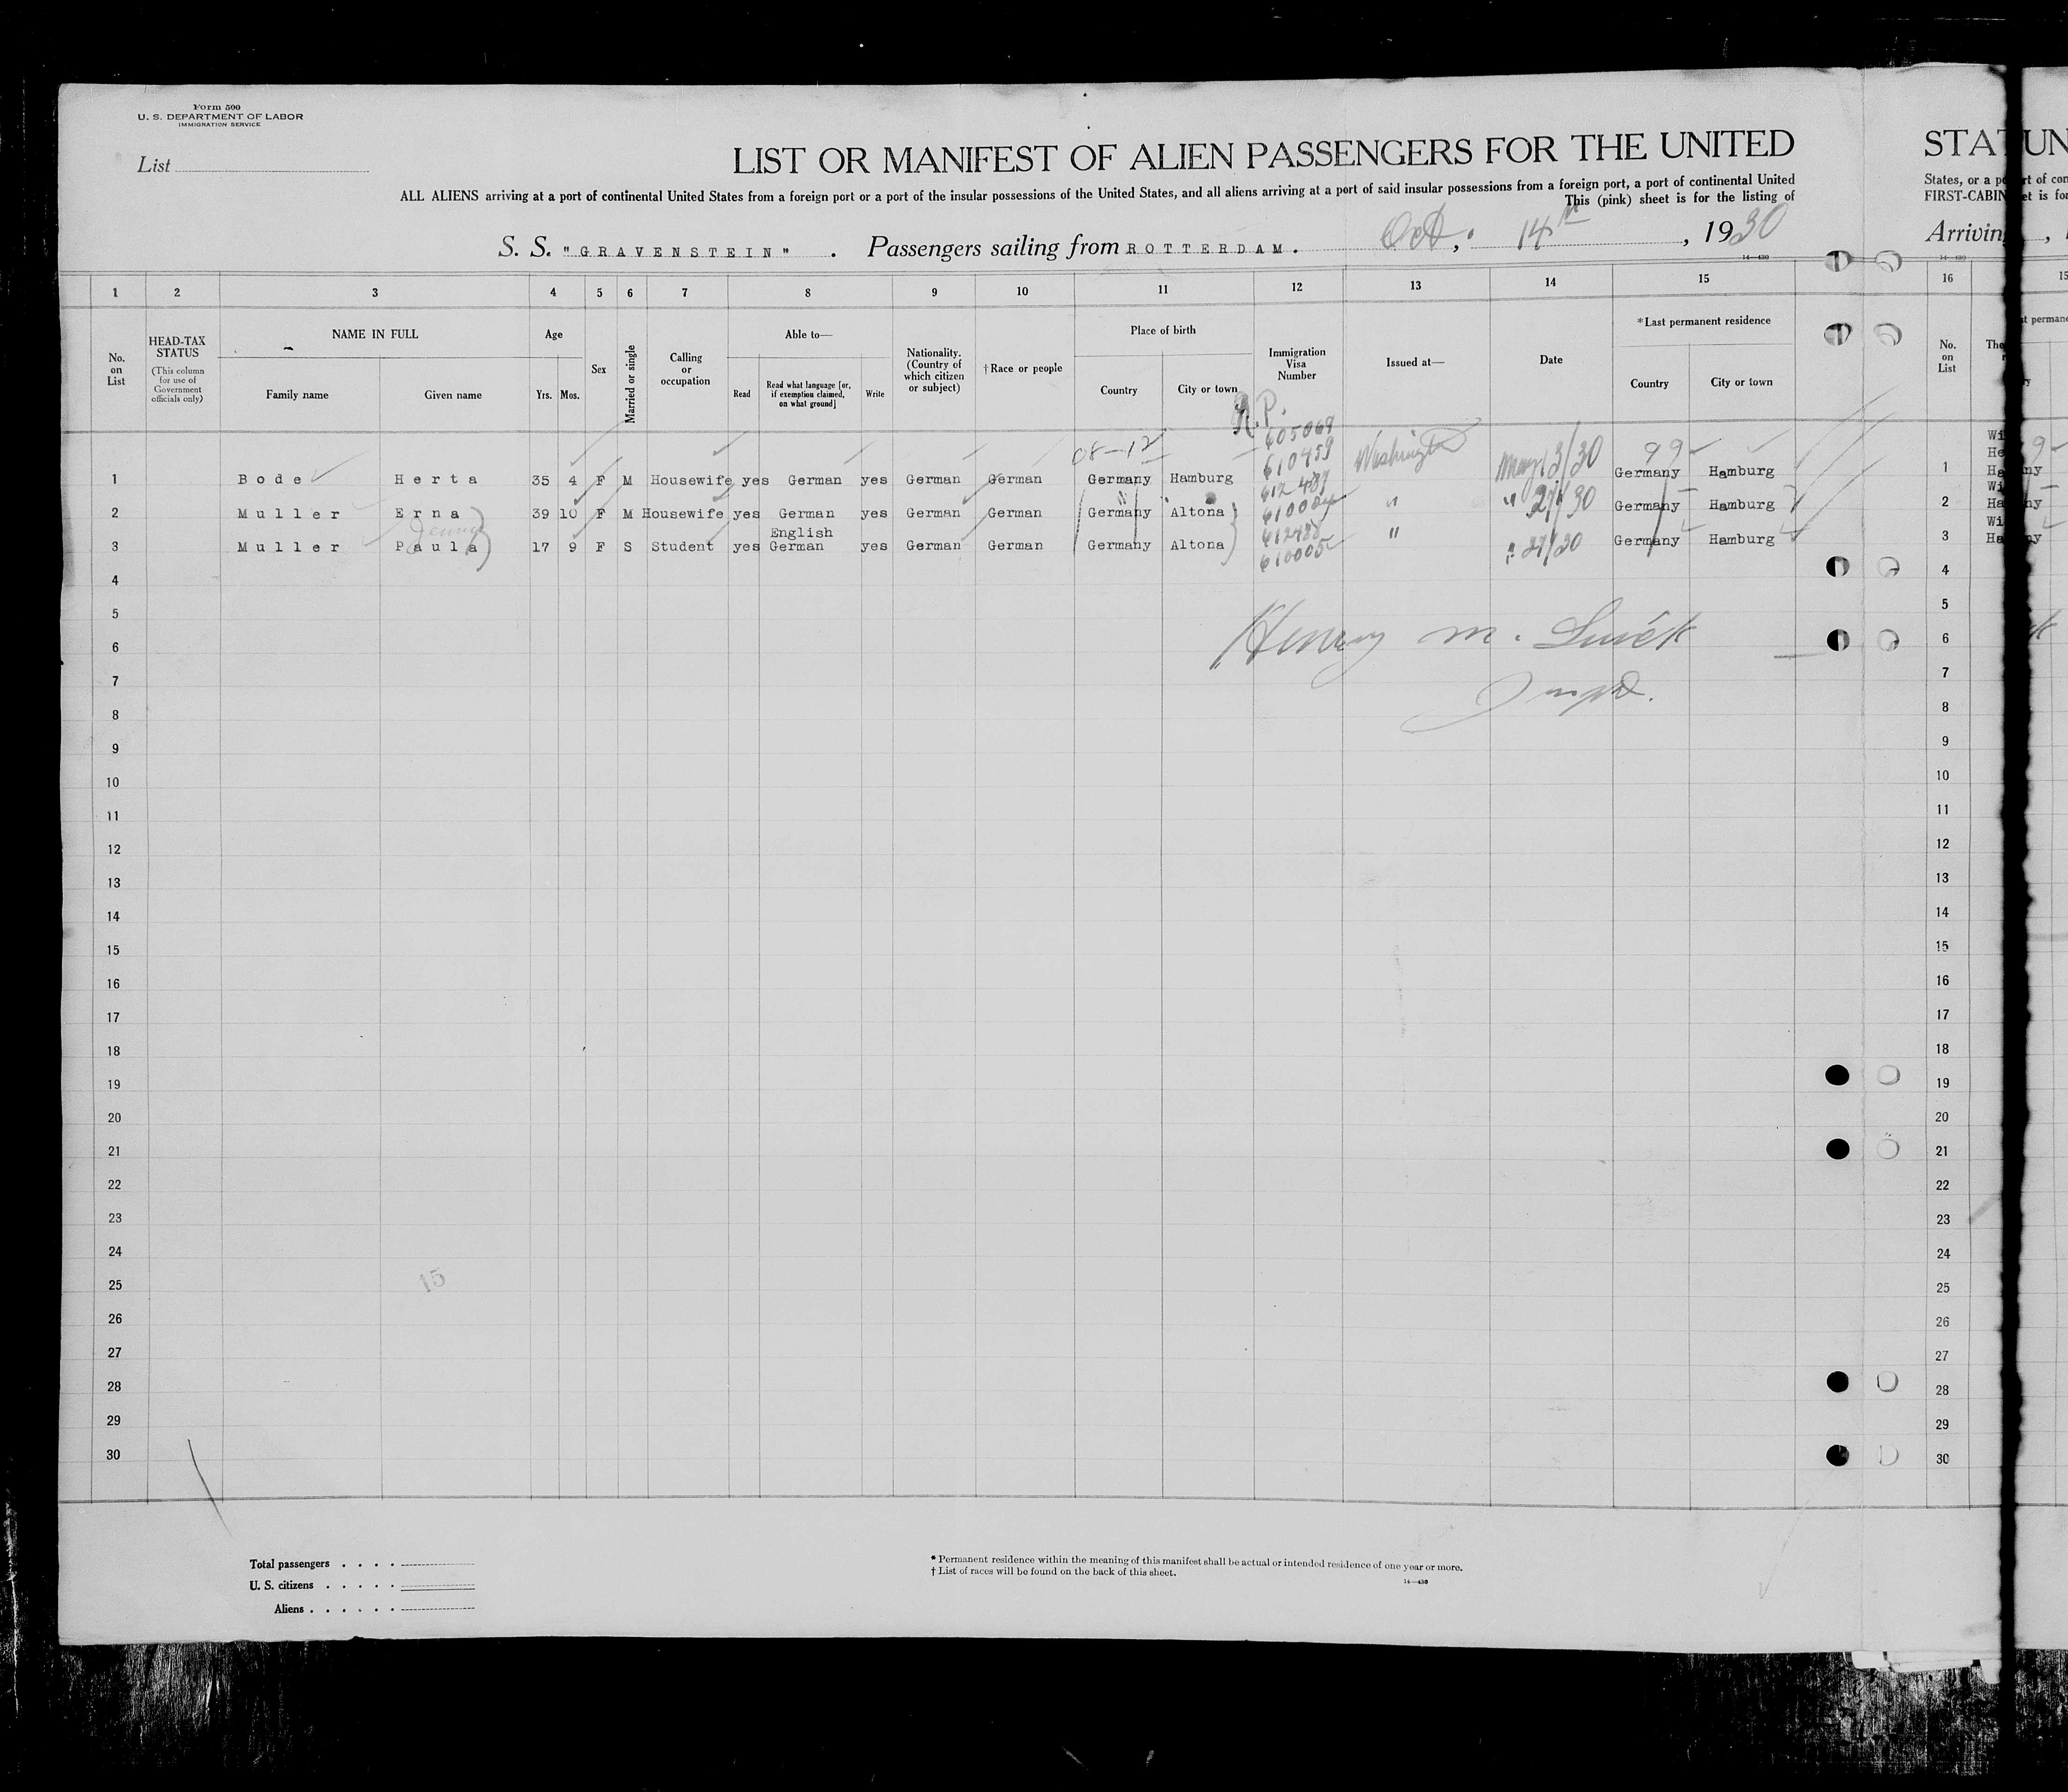 Form 500
U. S. DEPARTMENT OF LABOR
IMMIGRATION SERVICE
List
LIST OR MANIFEST OF ALIEN PASSENGERS FOR THE UNITED
STAT
UN
ALL ALIENS arriving at a port of continental United States from a foreign port or a port of the insular possessions of the United States, and all aliens arriving at a port of said insular possessions from a foreign port, a port of continental United
States, or a p
rt of con
This (pink) sheet is for the listing of
FIRST-CABIN
et is for
S. S. "GRAVENSTEIN" . Passengers sailing from ROTTERDAM. Oct, 14th, 1930
Arrivin
14—430
1 2 3 4 5 6 7 8 9 10 11 12 13 14 15 16
No. on List
HEAD-TAX STATUS
(This column for use of Government officials only)
NAME IN FULL
Family name Given name
Age
Yrs. Mos.
Sex
Married or single
Calling or occupation
Able to—
Read
Read what language [or, if exemption claimed, on what ground]
Write
Nationality. (Country of which citizen or subject)
†Race or people
Place of birth
Country City or town
Immigration Visa Number
Issued at—
Date
*Last permanent residence
Country City or town
No. on List
R.P.
605069
08-12 610459 99
1 Bode Herta 35 4 F M Housewife yes German yes German German Germany Hamburg Washington May 13/30 Germany Hamburg 1
612487
2 Muller Erna 39 10 F M Housewife yes German yes German German Germany Altona 610004 " " 27/30 Germany Hamburg 2
English 612488
3 Muller Paula 17 9 F S Student yes German yes German German Germany Altona 610005 " " 27/30 Germany Hamburg 3
4 4
5 5
6 Henry M. 6
7 Inspt. 7
8 8
9 9
10 10
11 11
12 12
13 13
14 14
15 15
16 16
17 17
18 18
19 19
20 20
21 21
22 22
23 23
24 24
15
25 25
26 26
27 27
28 28
29 29
30 30
Total passengers . . . .
U. S. citizens . . . . .
Aliens . . . . . .
* Permanent residence within the meaning of this manifest shall be actual or intended residence of one year or more.
† List of races will be found on the back of this sheet.
14—430